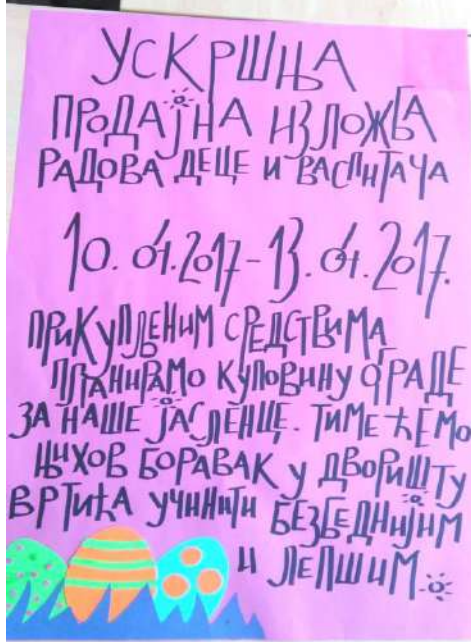 УСКРШЊА
ПРОДАЈНА ИЗЛОЖБА
РАДОВА ДЕЦЕ И ВАСПИТАЧА
10. 04.2017-13. 04. 2017.
ПРИКУПЉЕНИМ СРЕДСТВИМА
ПЛАНИРАМО КУПОВИНУ ОГРАДЕ
ЗА НАШЕ ЈАСЛЕНЦЕ. ТИМЕ ЋЕМО
ЊИХОВ БОРАВАК У ДВОРИШТУ
ВРТИЋА УЧИНИТИ БЕЗБЕДНИЈИМ
И ЛЕПШИМ.